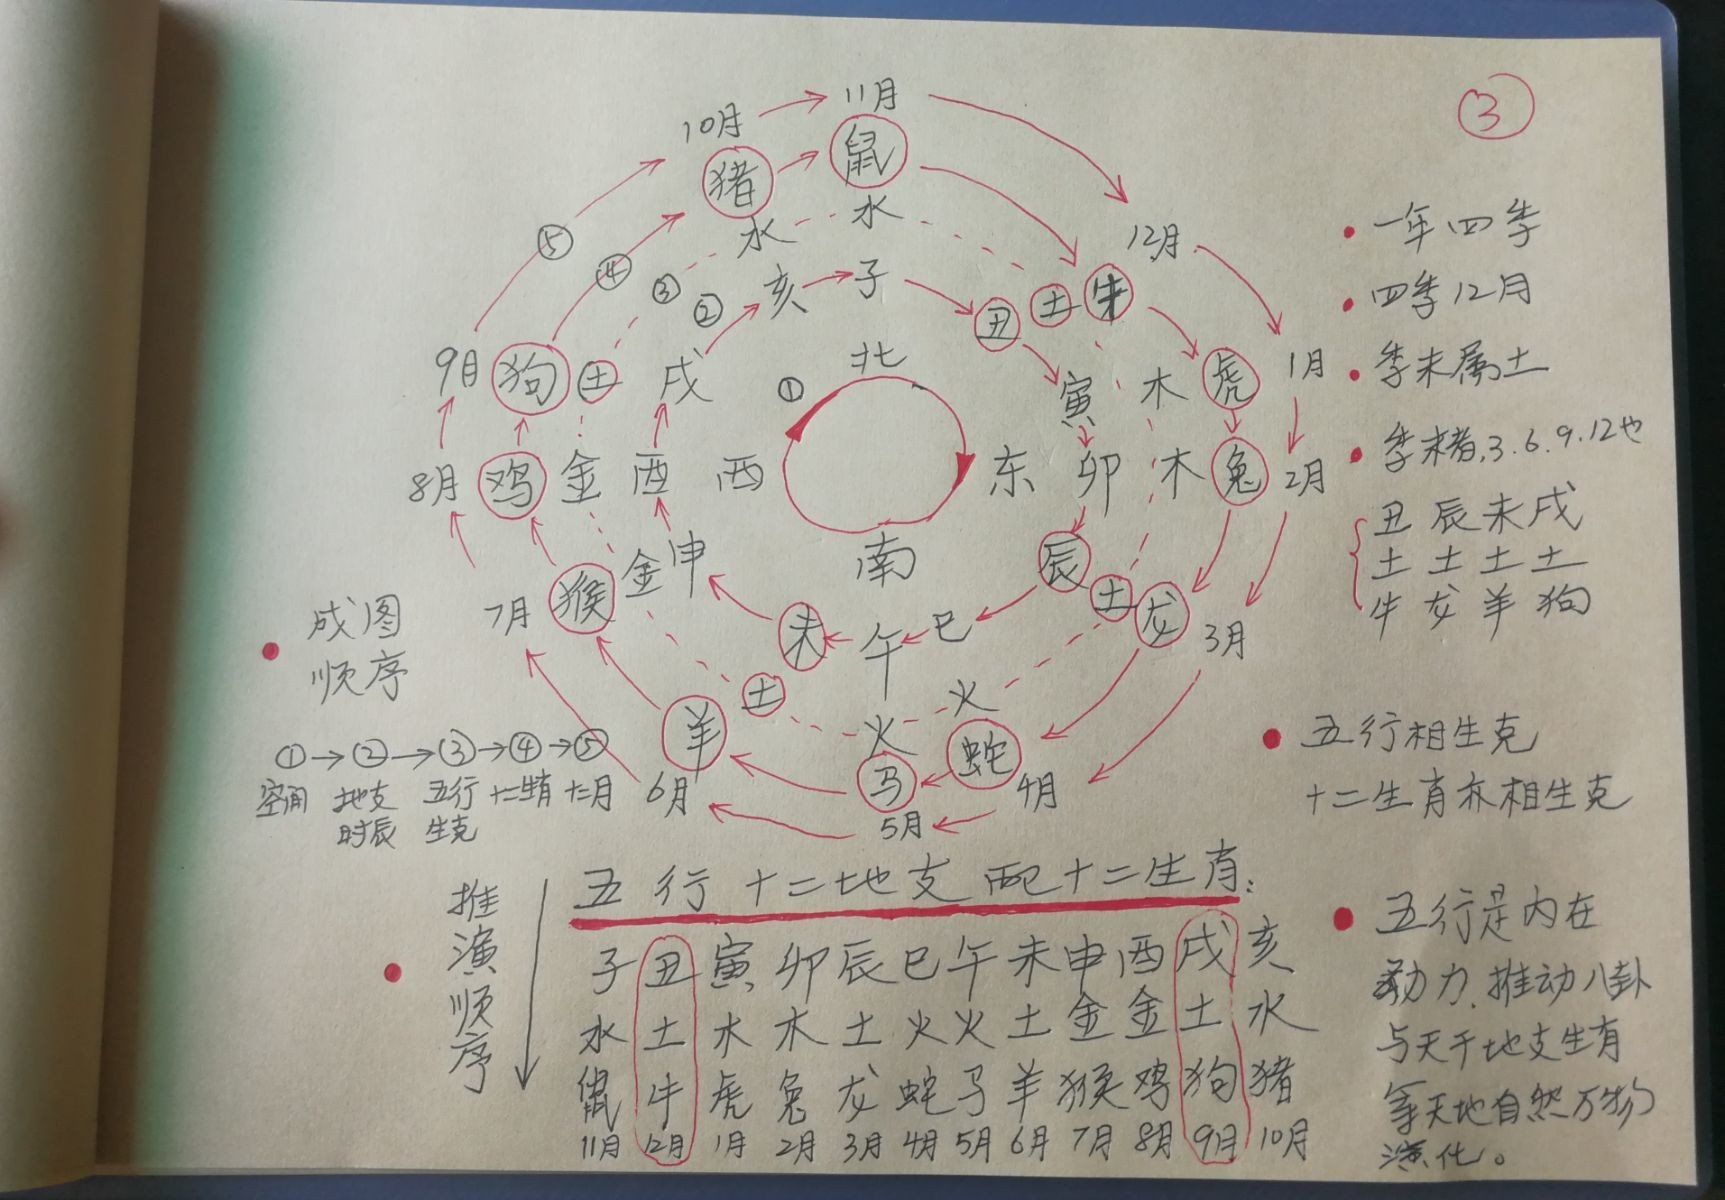 ③
10月 11月
猪 鼠
水 水
12月
⑤ ④ ③ ②
亥 子
丑 土 牛
9月 狗 土 戌
① 北
寅 木 虎 1月
8月 鸡 金 酉 西
东 卯 木 兔 2月
南
7月 猴 金 申
辰 土 龙 3月
未 午 巳
土 火 火
羊 马 蛇
6月 5月 4月
一年四季
四季12月
季末属土
季末者,3.6.9.12也
丑 辰 未 戌
土 土 土 土
牛 龙 羊 狗
五行相生克
十二生肖亦相生克
五行是内在
动力.推动八卦
与天干地支生肖
等天地自然万物
演化。
成图
顺序
①→②→③→④→⑤
空间 地支 五行 十二生肖 十二月
时辰 生克
推演顺序
五行十二地支配十二生肖:
子 丑 寅 卯 辰 巳 午 未 申 酉 戌 亥
水 土 木 木 土 火 火 土 金 金 土 水
鼠 牛 虎 兔 龙 蛇 马 羊 猴 鸡 狗 猪
11月 12月 1月 2月 3月 4月 5月 6月 7月 8月 9月 10月